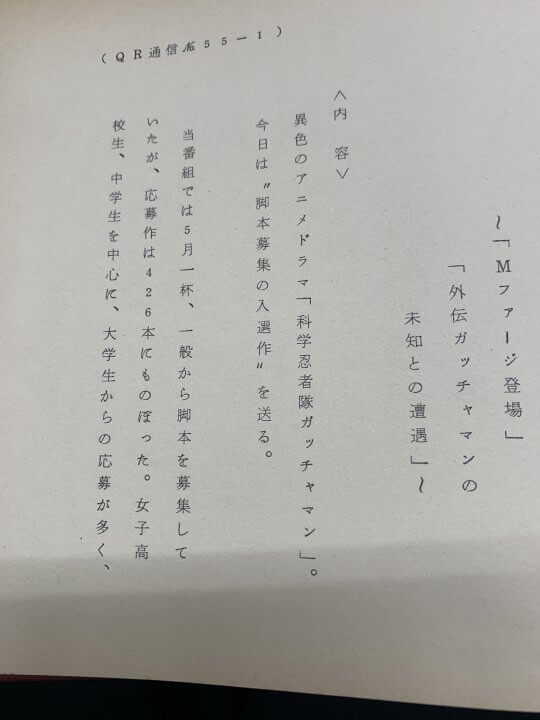 (QR通信№55-1)
~「Mファージ登場」
「外伝ガッチャマンの
未知との遭遇」~
<内 容>
異色のアニメドラマ「科学忍者隊ガッチャマン」。
今日は〝脚本募集の入選作〟を送る。
当番組では5月一杯、一般から脚本を募集して
いたが、応募作は426本にものぼった。女子高
校生、中学生を中心に、大学生からの応募が多く、